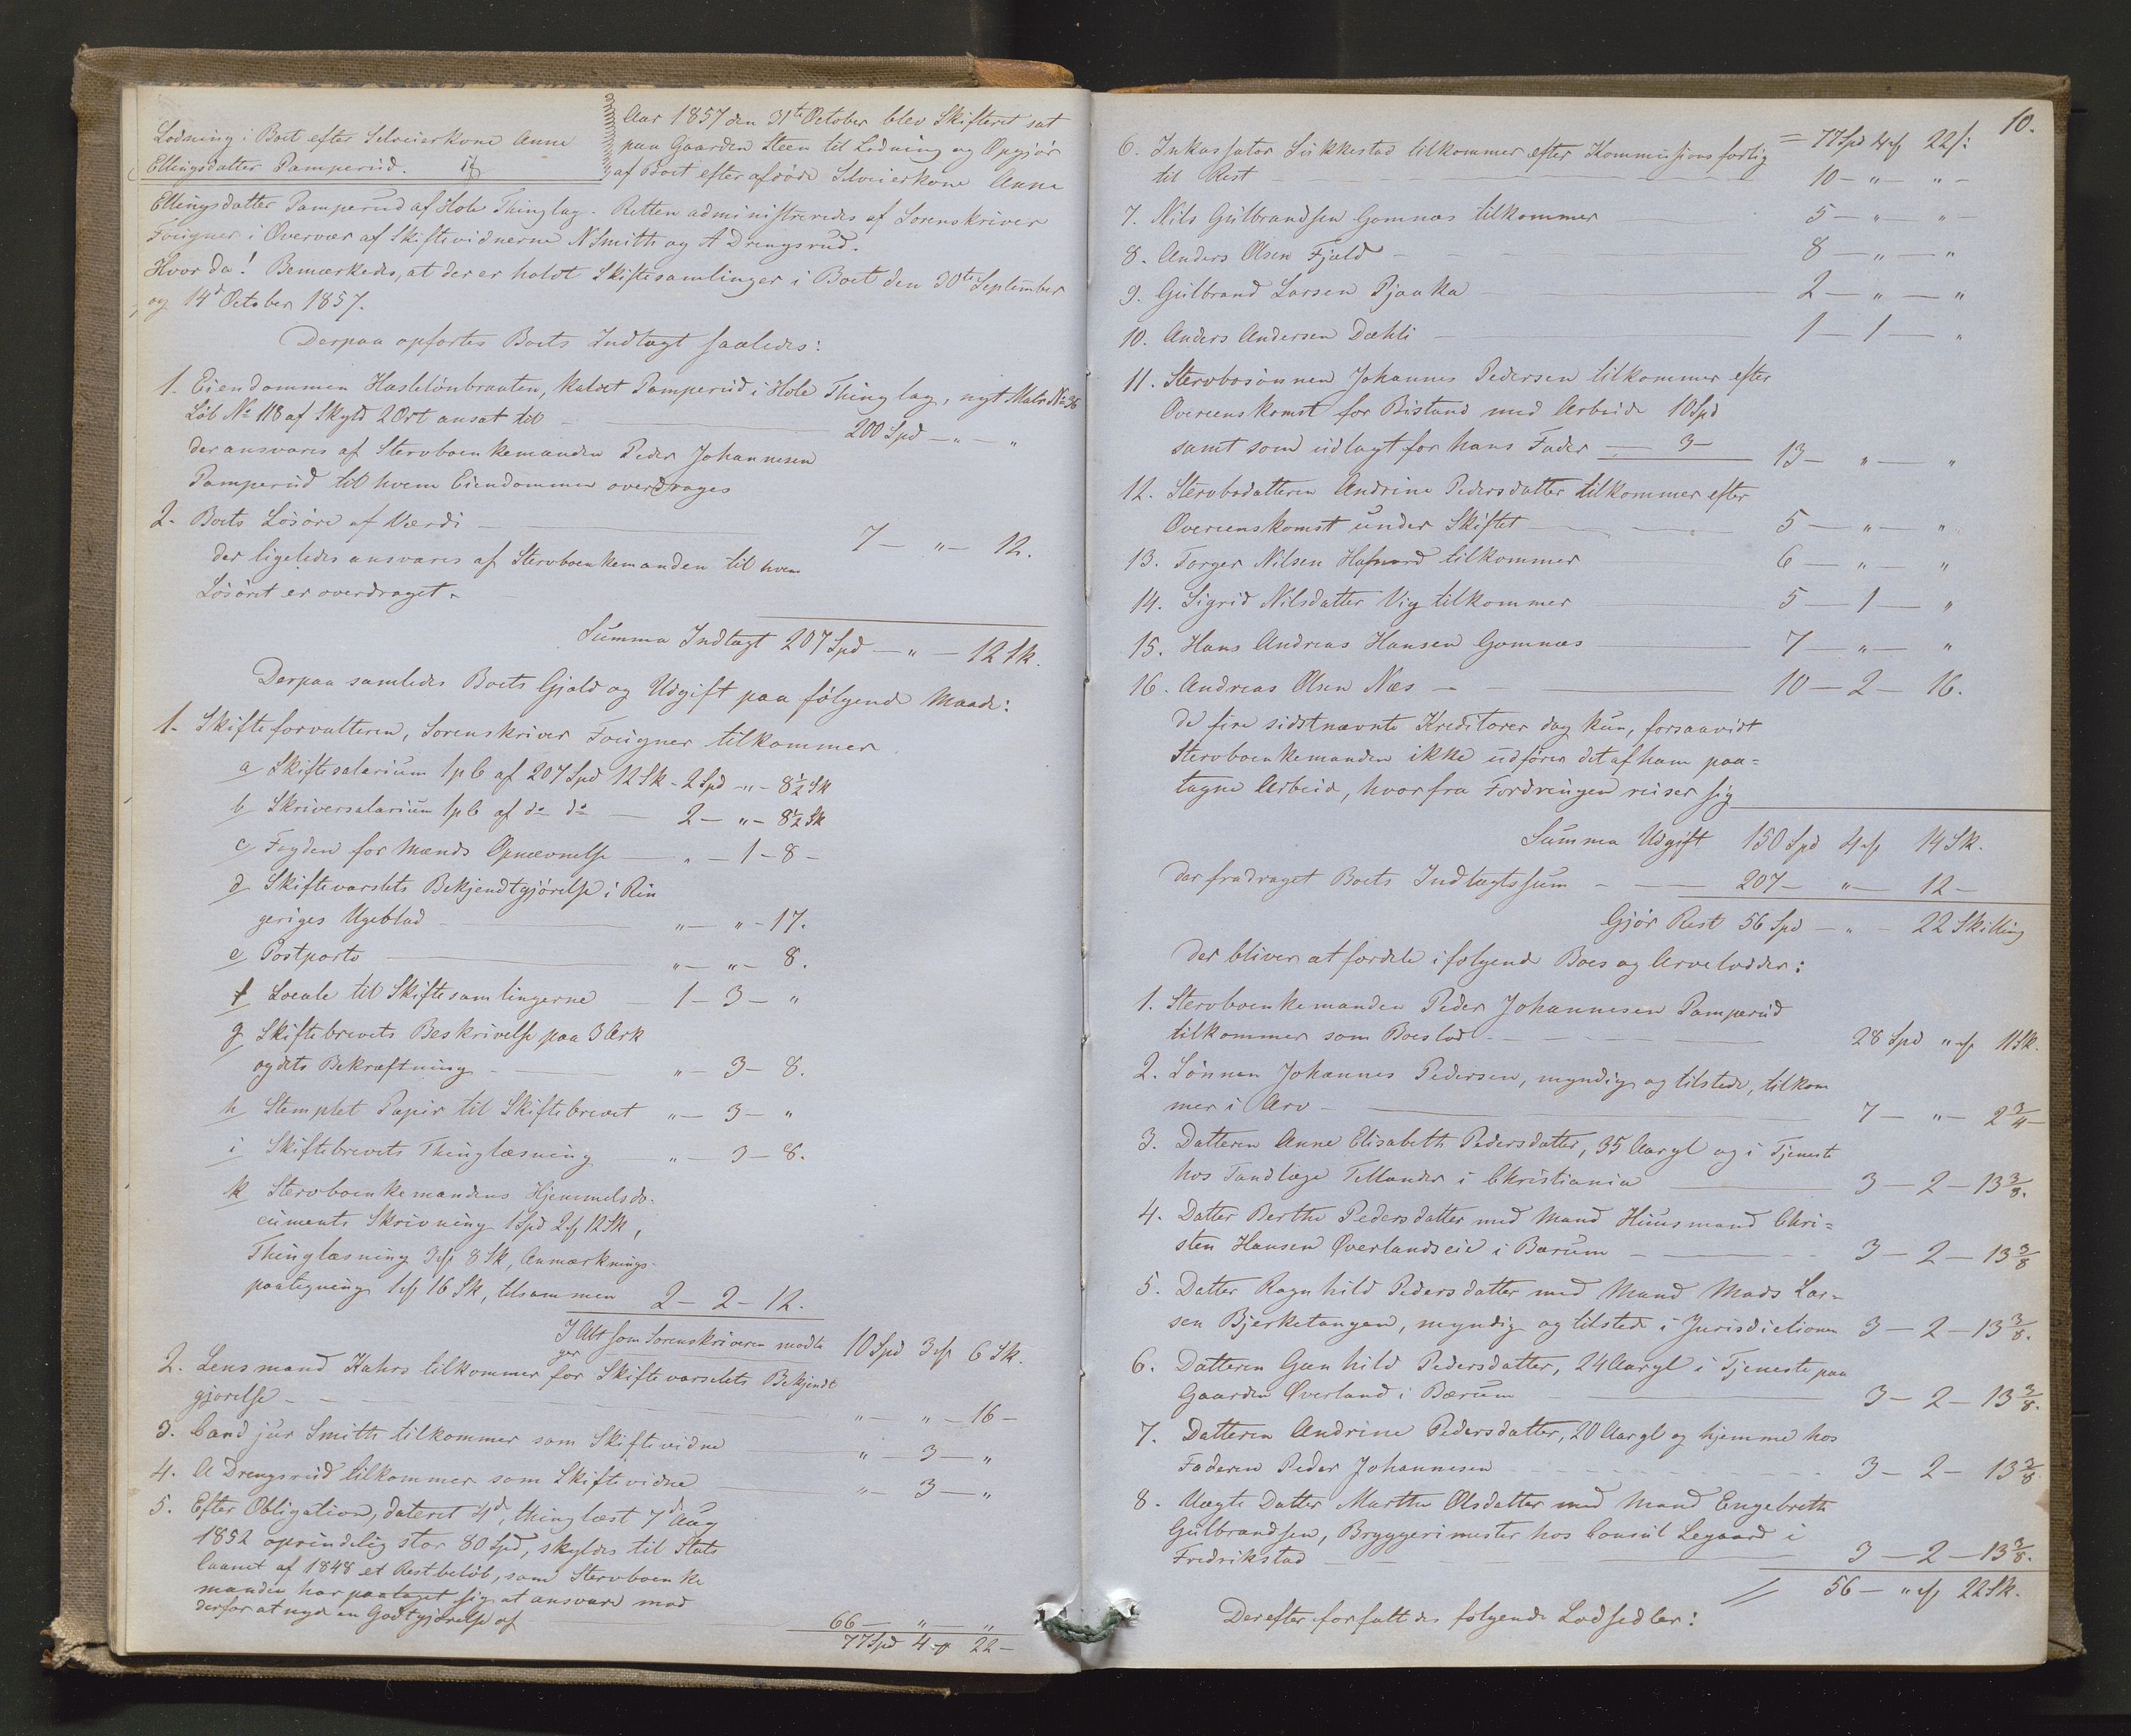 Lodning i Boet efter Selveierkone Anne
Ellingsdatter Pamperud.
Aar 1857 den 31te October blev Skifteret sat
paa Gaarden Steen til Lodning og Opgjör
af Boet efter afdöde Selveierkone Anne
Ellingsdatter Pamperud af Hole Thinglag. Retten administreredes af Sorenskriver
Fougner i Overvær af Skiftevidnerne N Smith og A Drengsrud.
Hvor da! Bemærkedes, at der er holdt Skiftesamlinger i Boet den 30te September
og 14d October 1857.
Derpaa opförtes Boets Indtægt saaledes:
1. Eiendommen Haslelönbraaten, kaldet Pamperud i Hole Thinglag, nyt Matr No 36
Löb No 118 af Skyld 2 Ort ansat til — 200 Spd — " — "
der ansvares af Stervboenkemanden Peder Johannesen
Pamperud til hvem Eiendommen overdrages
2. Boets Lösöre af Værdi — 7 — " — 12.
der ligeledes ansvares af Stervboenkemanden til hvem
Lösöret er overdraget.
Summa Indtægt 207 Spd — " — 12 Sk.
Derpaa samledes Boets Gjæld og Udgift paa fölgende Maade:
1. Skifteforvalteren, Sorenskriver Fougner tilkommer
a Skiftesalarium 1 pC af 207 Spd 12 Sk - 2 Spd - " - 8½ Sk
b Skriversalarium 1 pC af do do — 2 — " — 8½ Sk
c Fogden for Mænds Opnævnelse — " — 1 — 8 —
d Skiftevarslets Bekjendtgjörelse i Rin
geriges Ugeblad — " — " — 17.
e Postporto — " — " — 8.
f Locale til Skiftesamlingerne — 1 — 3 — "
g Skiftebrevets Beskrivelse paa 3 Ark
og dets Bekræftning — " — 3 — 8.
h Stemplet Papir til Skiftebrevet " — 3 — "
i Skiftebrevets Thinglæsning " — 3 — 8.
k Stervboenkemandens Hjemmelsdo-
cuments Skrivning 1 Spd 2 ℔ 12 Sk,
Thinglæsning 3 ℔ 8 Sk, Anmærknings-
paategning 1 ℔ 16 Sk, tilsammen 2 — 2 — 12.
I Alt som Sorenskriveren modta
ger — 10 Spd 3 ℔ 6 Sk.
2. Lensmand Kahrs tilkommer for Skiftevarselets Bekjendt
gjörelse — " — " — 16 —
3. Cand jur Smith tilkommer som Skiftevidne — " — 3 — "
4. A Drengsrud tilkommer som Skiftevidne — " — 3 — "
5. Efter Obligation, dateret 4d, thinglæst 7d Aug
1852 oprindelig stor 80 Spd, skyldes til Stats
laanet af 1848 et Restbelöb, som Stervboenke
manden har paataget sig at ansvare mod
derfor at nyde en Godtgjörelse af — 66 — " — "
77 Spd 4 ℔ 22 —
10.
= 77 Spd 4 ℔ 22 s:
6. Inkassator Lükkestad tilkommer efter Kommissionsforlig
til Rest — 10 — " — " —
7. Nils Gulbrandsen Gomnæs tilkommer — 5 — " — " —
8. Anders Olsen Fjeld — 8 — " — "
9. Gulbrand Larsen Pjaaka — 2 — " — "
10. Anders Andersen Dæhli — 1 — 1 — "
11. Stervbosönnen Johannes Pedersen tilkommer efter
Overeenskomst for Bistand med Arbeide 10 Spd
samt som udlagt for hans Fader — 3 — 13 — " — "
12. Stervbodatteren Andrine Pedersdatter tilkommer efter
Overeenskomst under Skiftet — 5 — " — "
13. Torger Nilsen Hafnord tilkommer 6 — " — "
14. Sigrid Nilsdatter Vig tilkommer — 5 — 1 — "
15. Hans Andreas Hansen Gomnæs — 7 — " — "
16. Andreas Olsen Næs — 10 — 2 — 16.
de fire sidstnævnte Kreditorer dog kun, forsaavidt
Stervboenkemanden ikke udförer det af ham paa=
tagne Arbeid, hvorfra Fordringen reiser sig
Summa Udgift 150 Spd 4 ℔ 14 Sk.
Der fradraget Boets Indtægtssum — 207 — " — 12 —
Gjör Rest 56 Spd — " — 22 Skilling
der bliver at fordele i fölgende Boes og Arvelodder:
1. Stervboenkemanden Peder Johannesen Pamperud
tilkommer som Boeslod — 28 Spd " ℔ 11 Sk.
2. Sönnen Johannes Pedersen, myndig og tilstede, tilkom
mer i Arv — 7 — " — 2 3/4 —
3. Datteren Anne Elisabeth Pedersdatter, 35 Aar gl og i Tjeneste
hos Tandlæge Tellander i Christiania — 3 — 2 — 13 3/8.
4. Datter Berthe Pedersdatter med Mand Huusmand Chri=
sten Hansen Øverlandseie i Bærum — 3 — 2 — 13 3/8
5. Datter Ragnhild Pedersdatter med Mand Mads Lar=
sen Bjerketangen, myndig og tilstede i Jurisdictionen 3 — 2 — 13 3/8.
6. Datteren Gunhild Pedersdatter, 24 Aar gl i Tjeneste paa
Gaarden Øverland i Bærum — 3 — 2 — 13 3/8.
7. Datteren Andrine Pedersdatter, 20 Aar gl og hjemme hos
Faderen Peder Johannesen — 3 — 2 — 13 3/8
8. Uægte Datter Marthe Olsdatter med Mand Engebreth
Gulbrandsen, Bryggerimester hos Consul Legaard i
Fredrikstad — 3 — 2 — 13 3/8.
56 — " ℔ 22 Sk.
Derefter forfattedes fölgende Lodsedler: